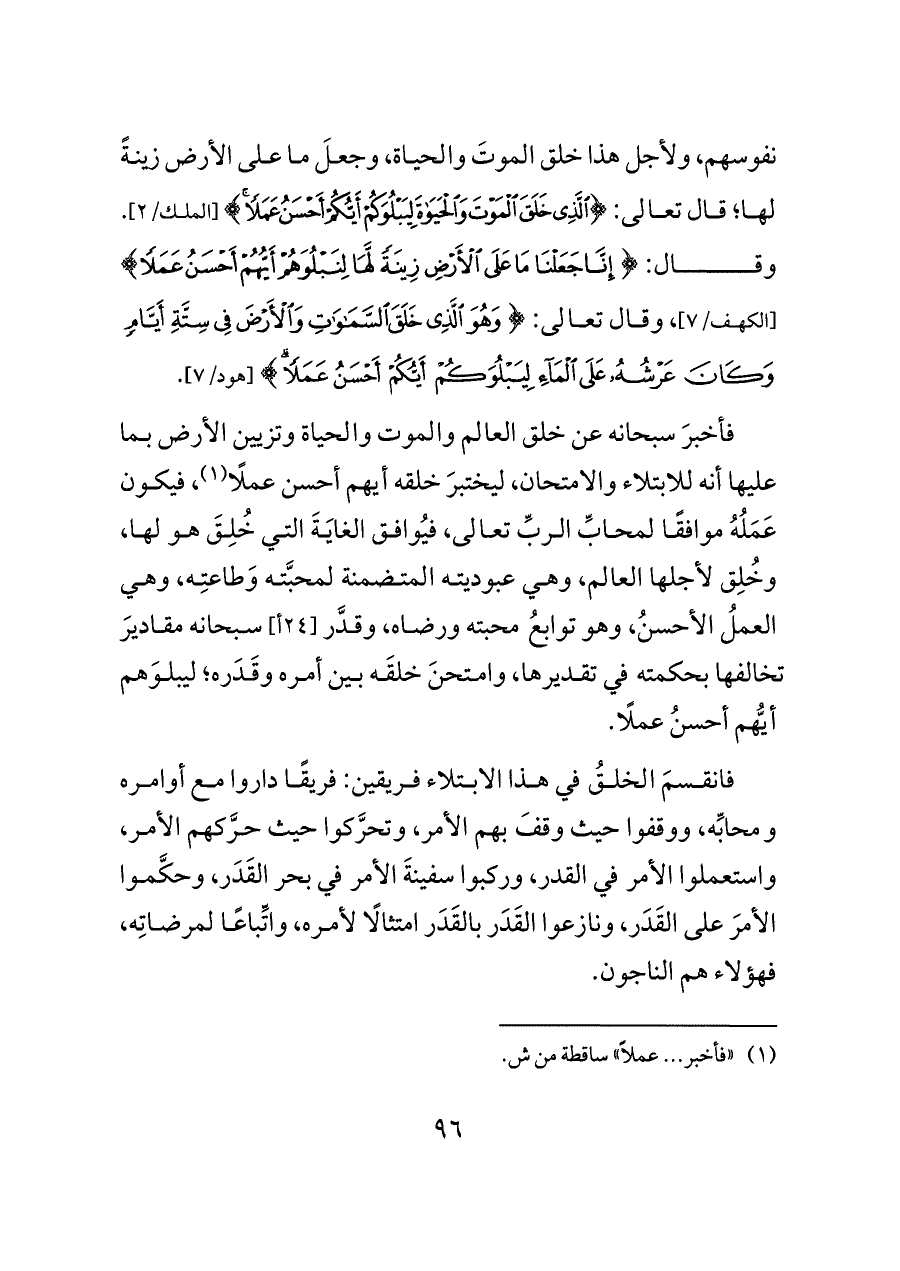 نفوسهم، ولأجل هذا خلق الموتَ والحياة، وجعلَ ما على الأرض زينةً
لها؛ قال تعالى: ﴿ٱلَّذِى خَلَقَ ٱلْمَوْتَ وَٱلْحَيَوٰةَ لِيَبْلُوَكُمْ أَيُّكُمْ أَحْسَنُ عَمَلًاۚ﴾ [الملك/ ٢].
وقــــــال: ﴿إِنَّا جَعَلْنَا مَا عَلَى ٱلْأَرْضِ زِينَةً لَّهَا لِنَبْلُوَهُمْ أَيُّهُمْ أَحْسَنُ عَمَلًا﴾
[الكهف/ ٧]، وقال تعالى: ﴿وَهُوَ ٱلَّذِى خَلَقَ ٱلسَّمَٰوَٰتِ وَٱلْأَرْضَ فِى سِتَّةِ أَيَّامٍ
وَكَانَ عَرْشُهُۥ عَلَى ٱلْمَآءِ لِيَبْلُوَكُمْ أَيُّكُمْ أَحْسَنُ عَمَلًاۗ﴾ [هود/ ٧].
فأخبرَ سبحانه عن خلق العالم والموت والحياة وتزيين الأرض بما
عليها أنه للابتلاء والامتحان، ليختبرَ خلقه أيهم أحسن عملًا(١)، فيكون
عَمَلُهُ موافقًا لمحابِّ الربِّ تعالى، فيُوافق الغايَةَ التي خُلِقَ هو لها،
وخُلِق لأجلها العالم، وهي عبوديته المتضمنة لمحبَّته وَطاعتِه، وهي
العملُ الأحسنُ، وهو توابعُ محبته ورضاه، وقدَّر [٢٤أ] سبحانه مقاديرَ
تخالفها بحكمته في تقديرها، وامتحنَ خلقَه بين أمره وقَدَره؛ ليبلوَهم
أيُّهم أحسنُ عملًا.
فانقسمَ الخلقُ في هذا الابتلاء فريقين: فريقًا داروا مع أوامره
ومحابِّه، ووقفوا حيث وقفَ بهم الأمر، وتحرَّكوا حيث حرَّكهم الأمر،
واستعملوا الأمر في القدر، وركبوا سفينةَ الأمر في بحر القَدَر، وحكَّموا
الأمرَ على القَدَر، ونازعوا القَدَر بالقَدَر امتثالًا لأمره، واتِّباعًا لمرضاتِه،
فهؤلاء هم الناجون.
(١) «فأخبر... عملاً» ساقطة من ش.
٩٦